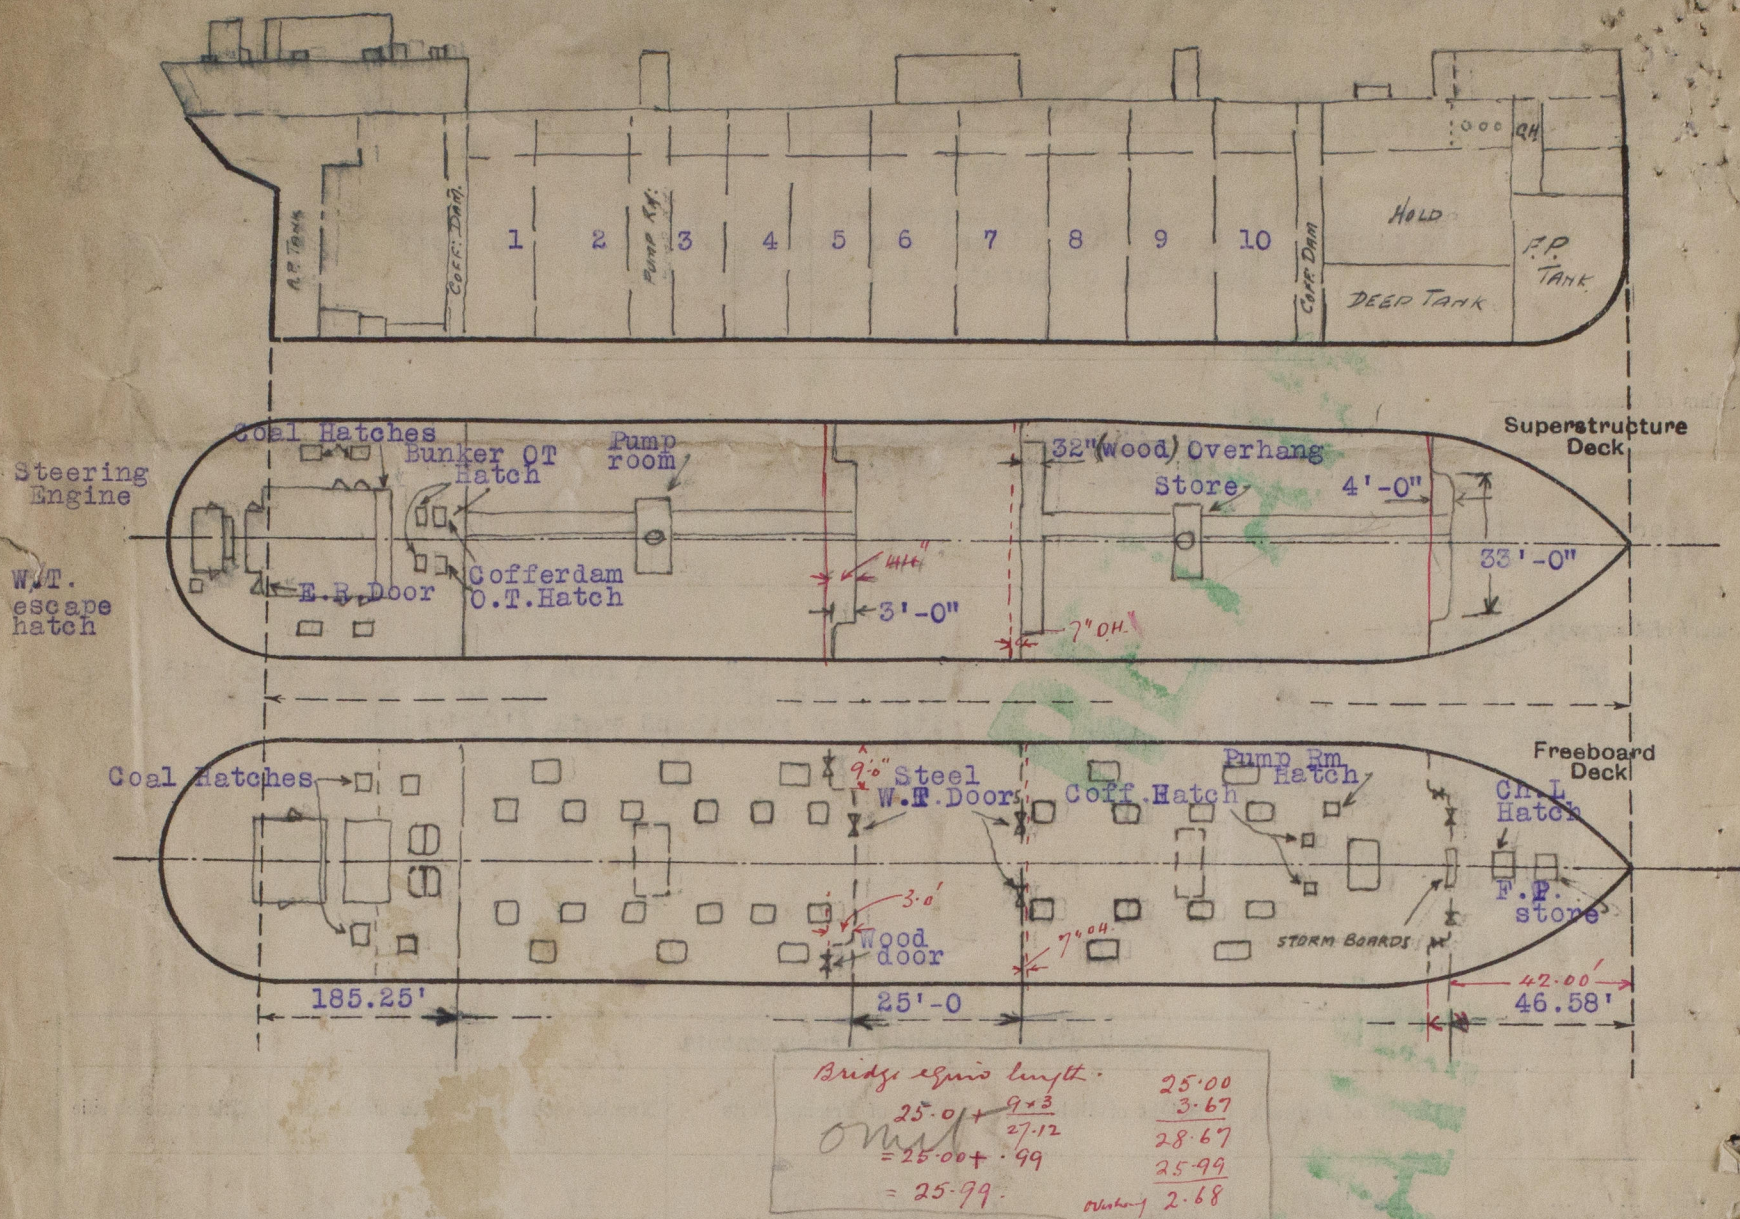 A.P. TANK
COFF: DAM.
1
2
PUMP RM:
3
4
5
6
7
8
9
10
COFF: DAM
HOLD
DEEP TANK
CH
F.P.
TANK
Superstructure
Deck
Coal Hatches
Bunker OT
Hatch
Pump
room
32"(wood) Overhang
Store
4'-0"
Steering
Engine
33'-0"
W.T.
escape
hatch
E.R.Door
Cofferdam
O.T.Hatch
3'-0"
7" O.H.
Freeboard
Deck
Coal Hatches
9'.0"
Steel
W.T.Doors
Coff.Hatch
Pump Rm
Hatch
Ch.L
Hatch
3.0'
Wood
door
7" O.H.
STORM BOARDS
F.P.
store
185.25'
25'-0
42.00'
46.58'
Bridge equiv length.
25.0 + 9×3
27.12
= 25.00 + .99
= 25.99.
Omit
25.00
3.67
28.67
25.99
overhang 2.68